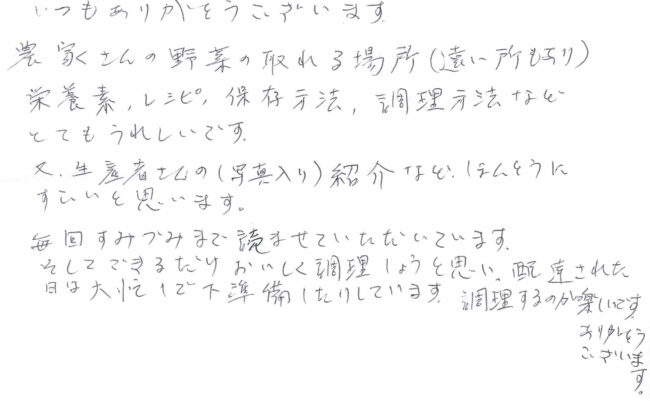 いつもありがとうございます
農家さんの野菜の取れる場所(遠い所もあり)
栄養素,レシピ,保存方法,調理方法など
とてもうれしいです.
又.生産者さんの(写真入り)紹介など.ほんとうに
すごいと思います。
毎回すみずみまで読ませていただいています.
そしてできるだけおいしく調理しようと思い.配達された
日は大忙しで下準備したりしています.調理するのが楽しいです.
ありがとう
ございま
す.